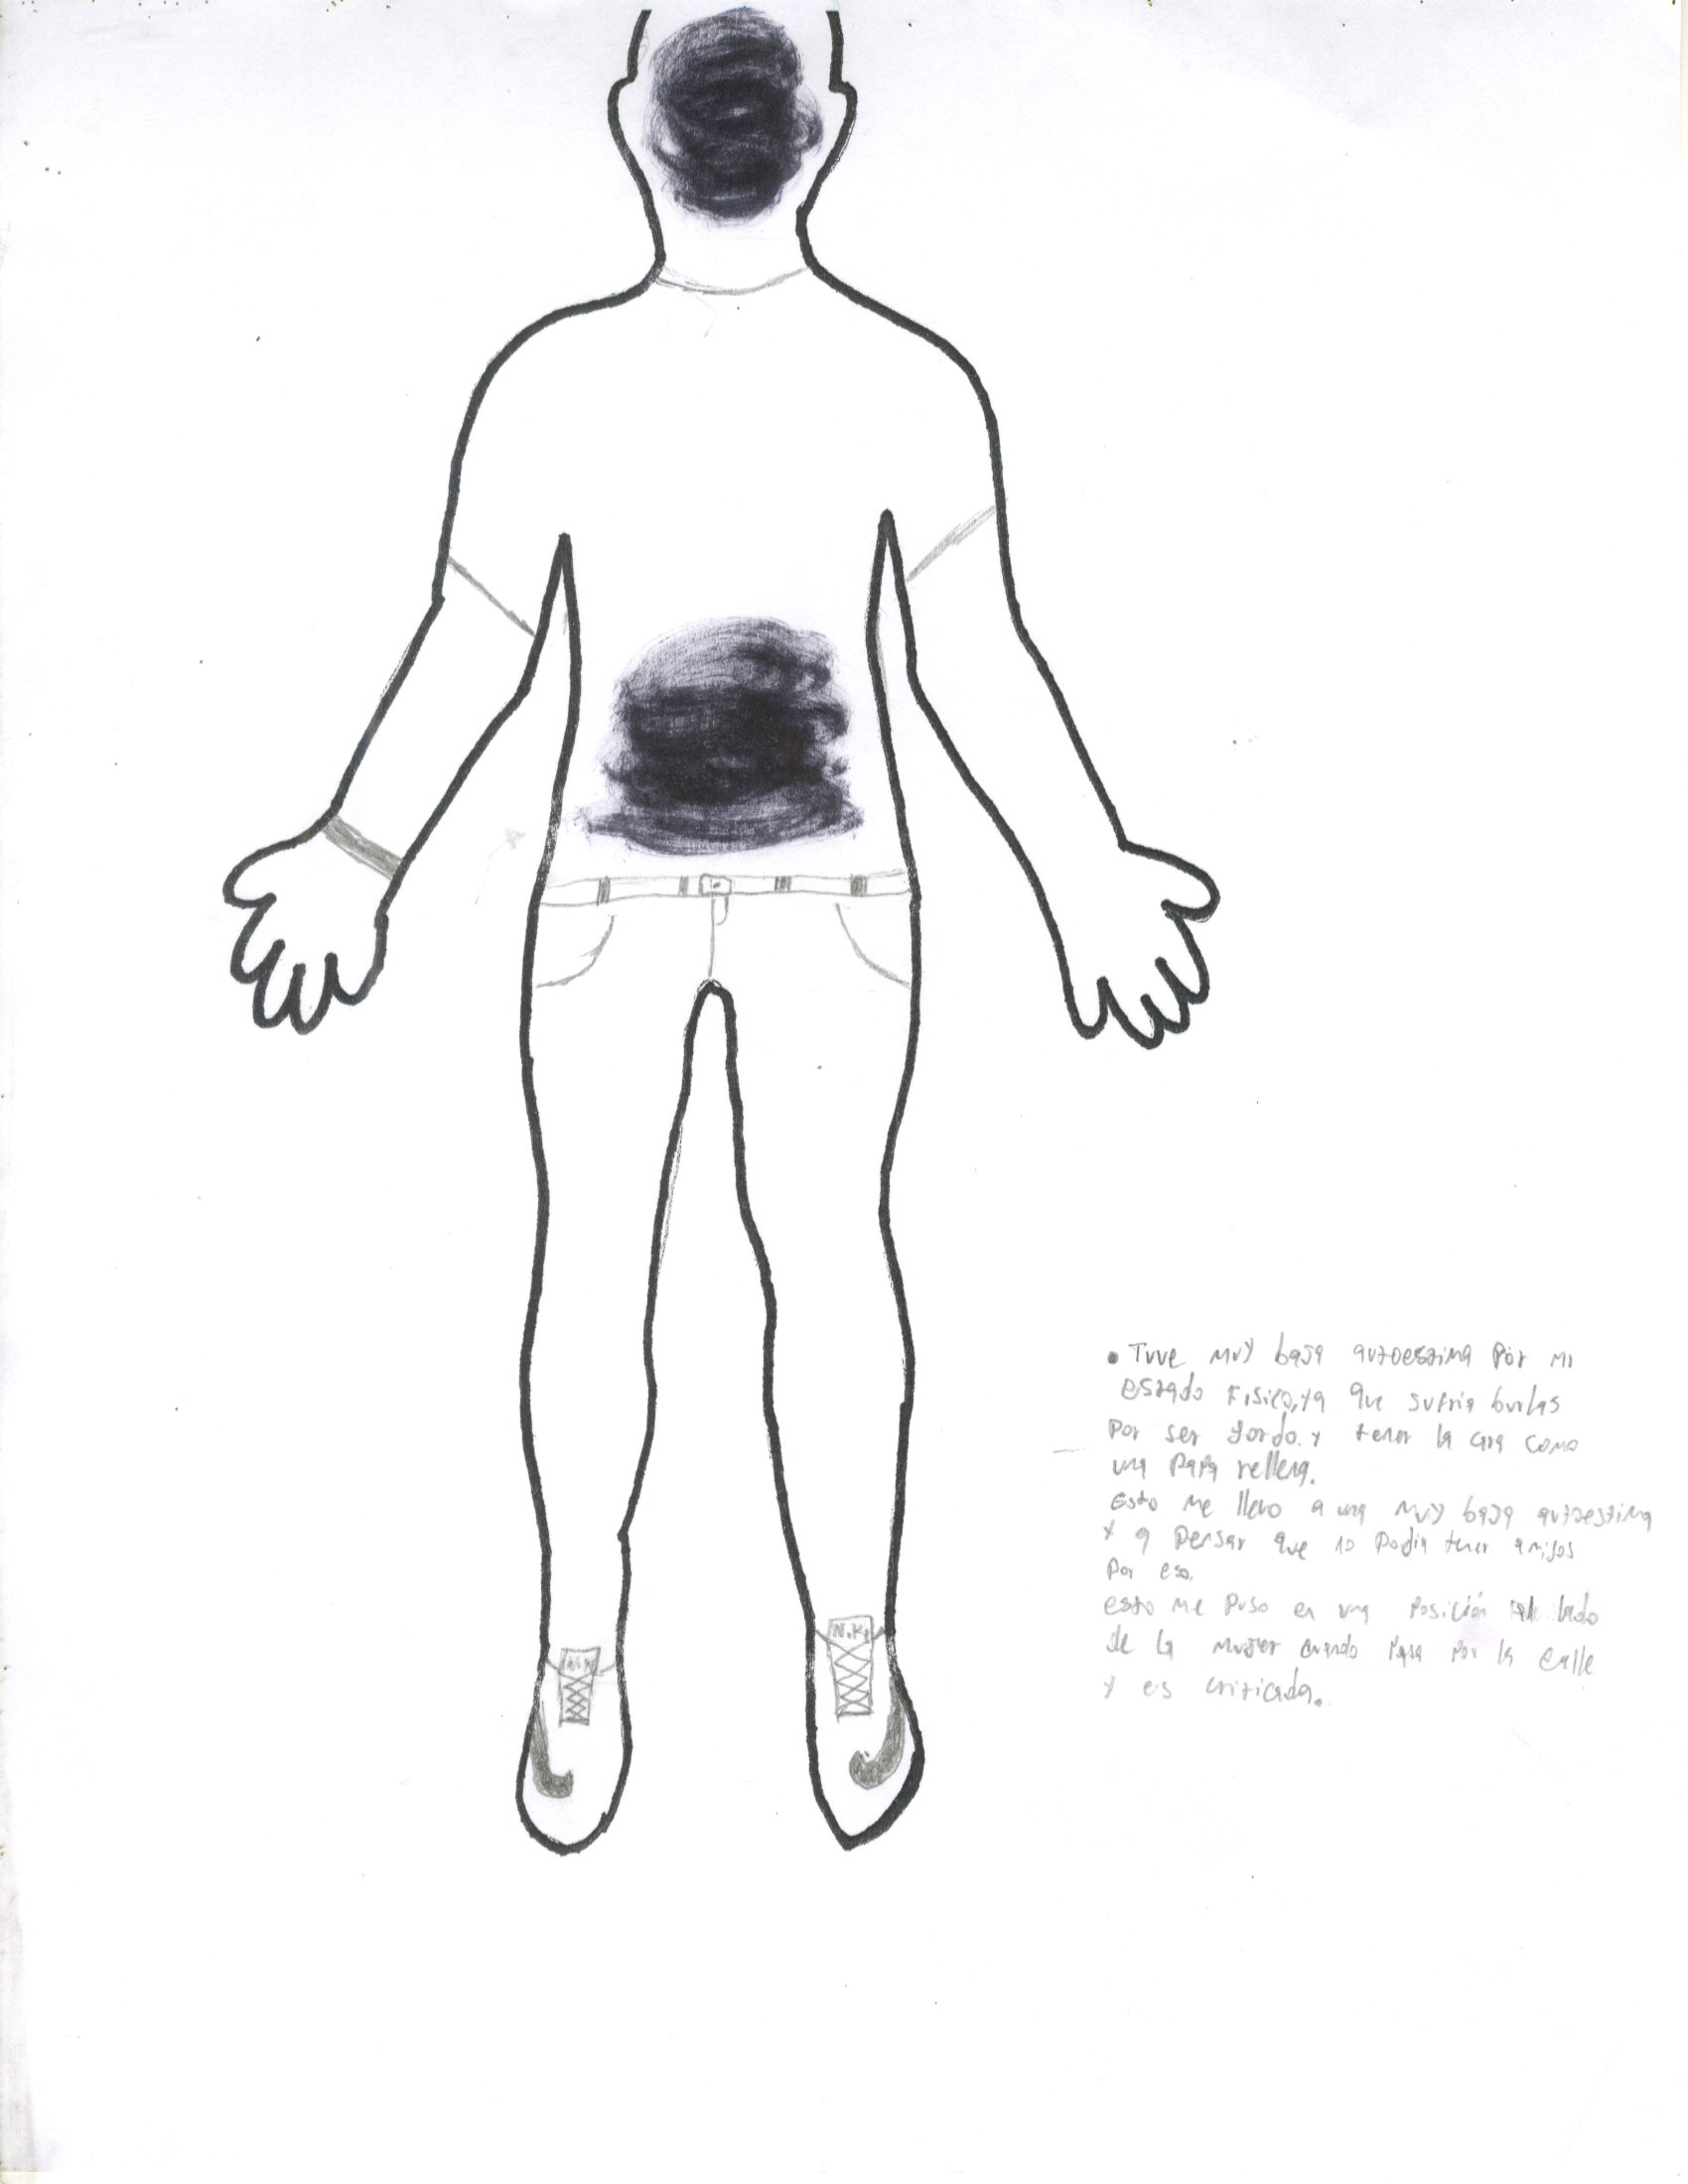 Nike
• Tuve muy baja autoestima por mi
estado Fisico, ya que sufria burlas
por ser gordo. y tener la cara como
una papa rellena.
Esto me llevo a una muy baja autoestima
y a pensar que no podia tener amigos
por eso.
esto me puso en una posición lado
de la mujer cuando pasa por la calle
y es criticada.